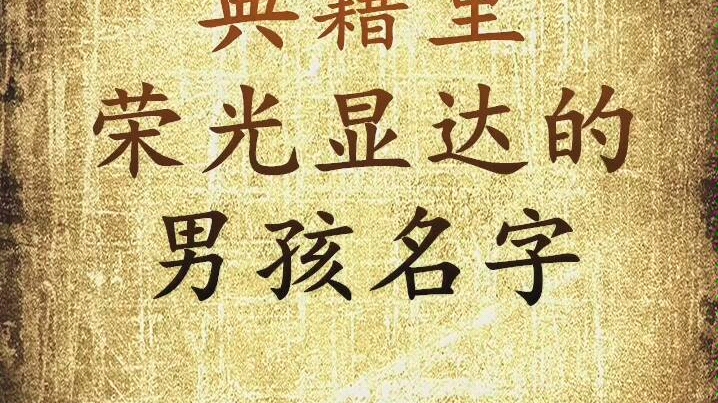 典籍里
荣光显达的
男孩名字